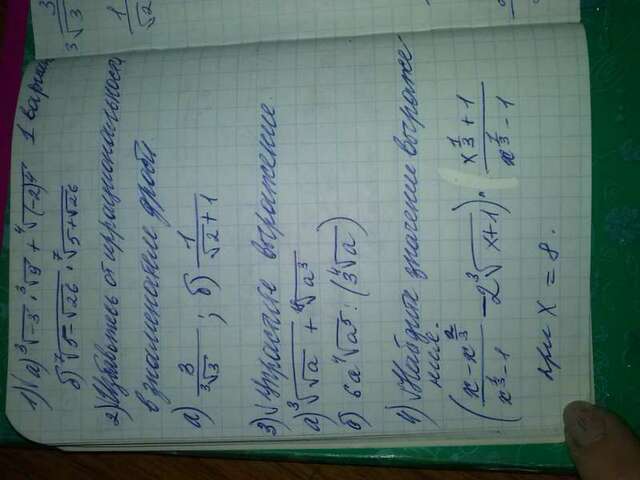 1 вариан
1) а) ∛-3 · ∛9 + ∜(-2)⁴
б) ⁷√5-√26 · ⁷√5+√26
2) Избавьтесь от иррациональност
в знаменателе дроби
а) 3/∛3 ; б) 1/√2+1
3) Упростите выражение.
а) ∛√a + ∜a³
б) 6a ∜a³ : (3∜a)
4) Найдите значение выраже-
ния.
(x - x^(2/3) / x^(1/3) - 1 - 2∛x+1) · x^(1/3) + 1 / x^(1/3) - 1
при x = 8.